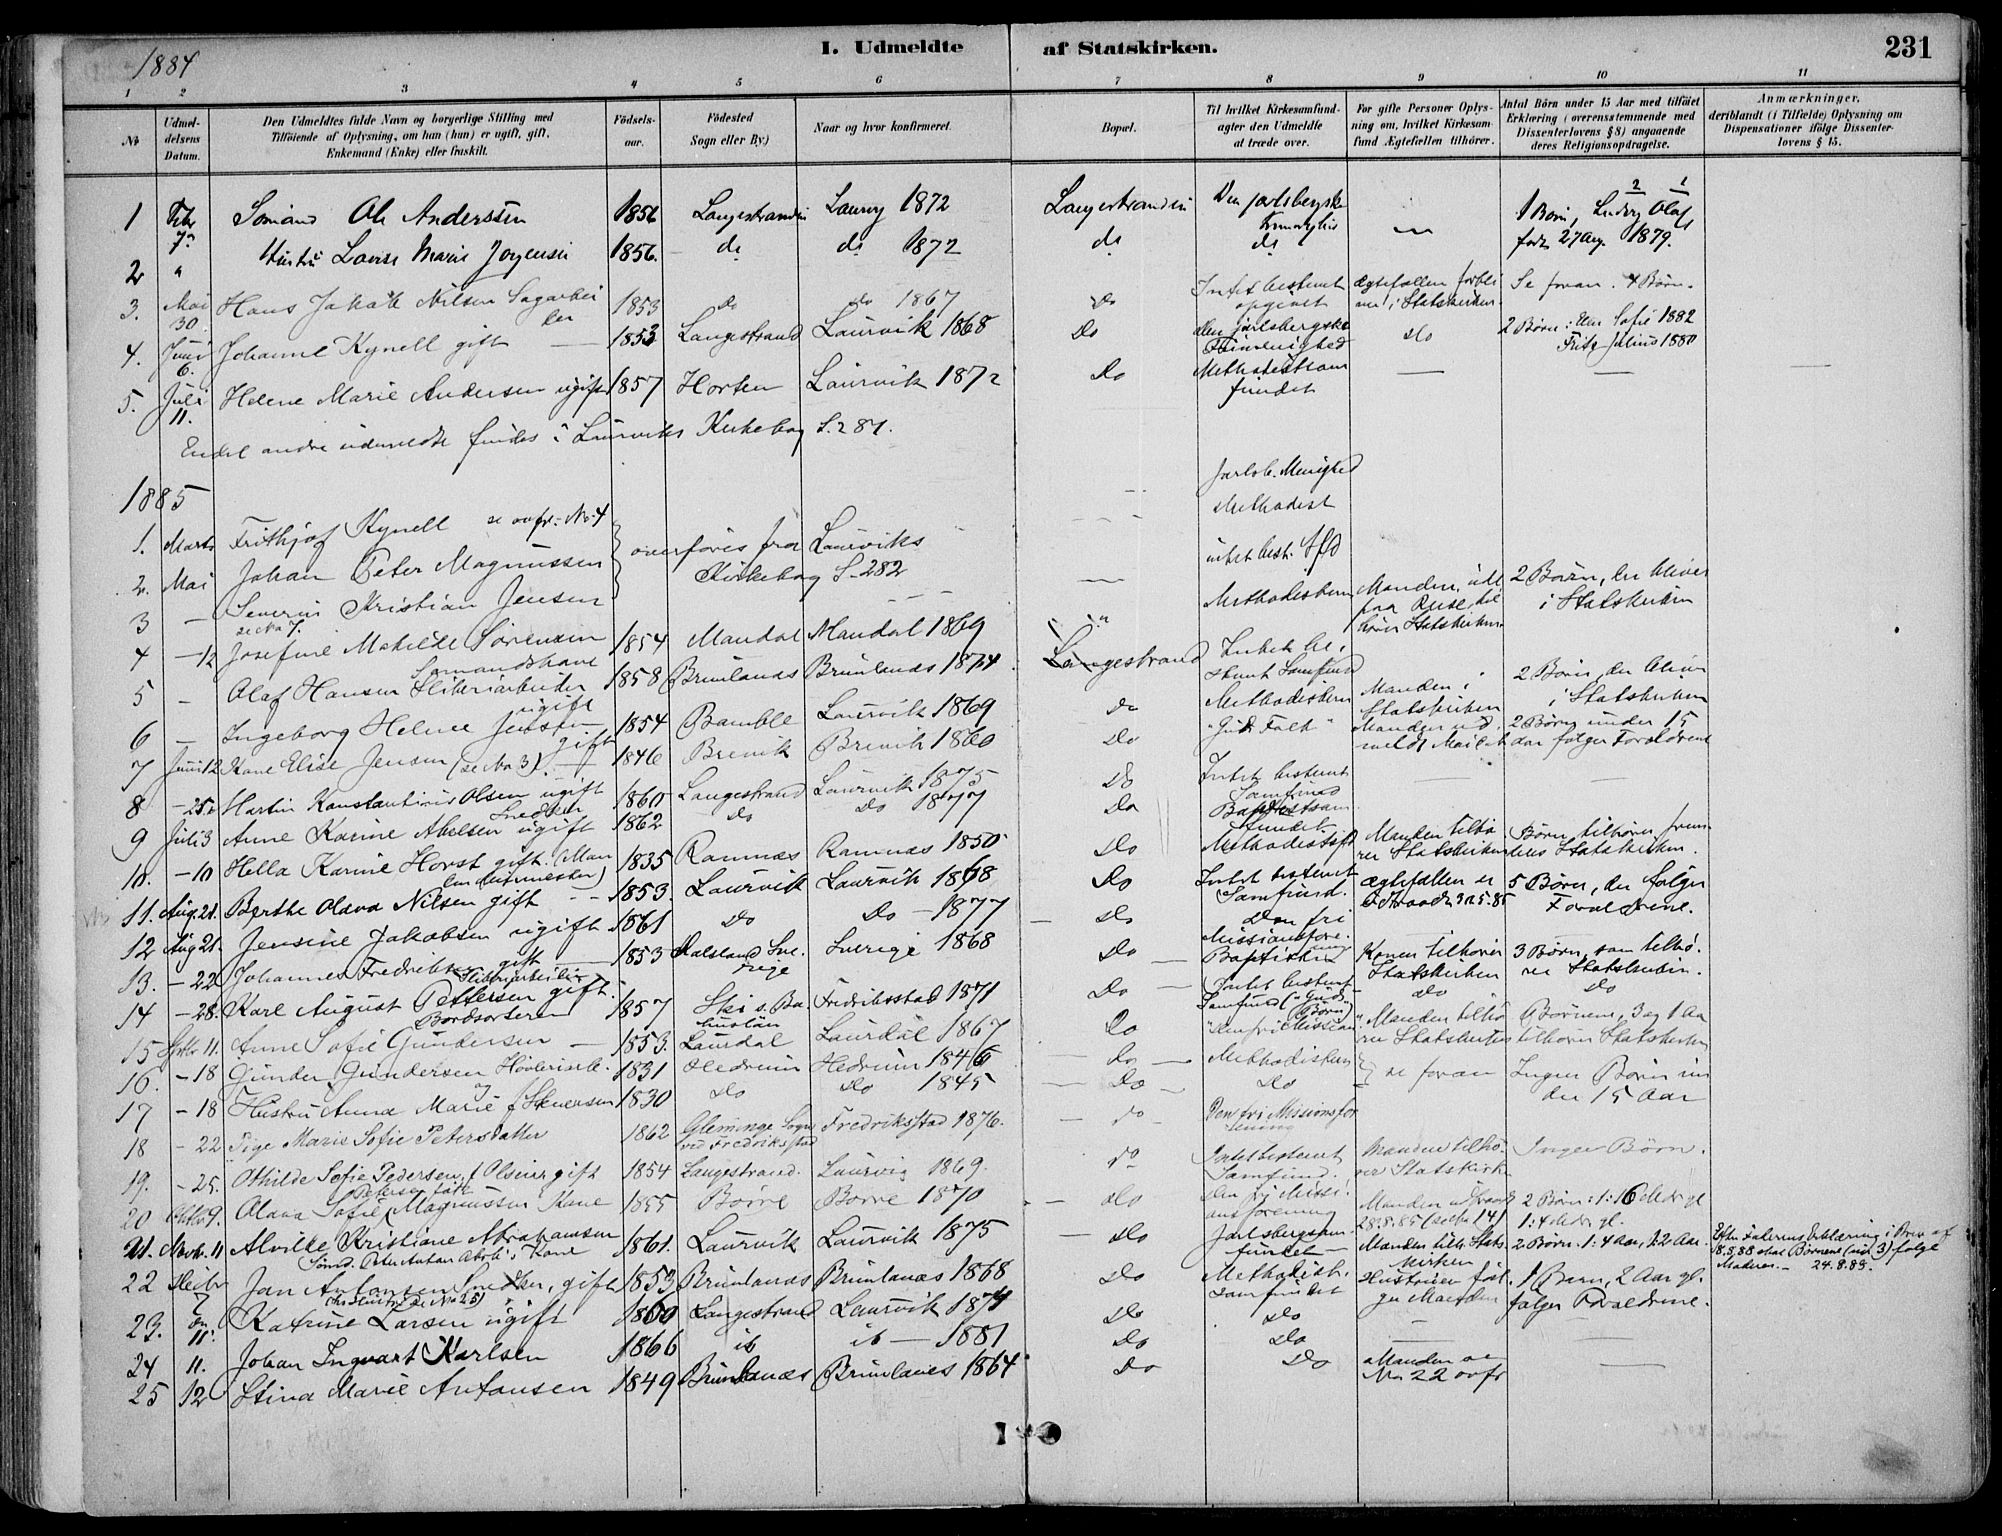 1884
I. Udmeldte af Statskirken.
231
1 2 3 4 5 6 7 8 9 10 11
No
Udmeldelsens Datum.
Den Udmeldtes fulde Navn og borgerlige Stilling med
Tilföiende af Oplysning, om han (hun) er ugift, gift,
Enkemand (Enke) eller fraskilt.
Födselsaar.
Födested
Sogn eller By.)
Naar og hvor konfirmeret.
Bopæl.
Til hvilket Kirkesamfund
agter den Udmeldte
at træde over.
For gifte Personer Oplysning om, hvilket Kirkesamfund Ægtefællen tilhörer.
Antal Börn under 15 Aar med tilföiet
Erklæring (overensstemmende med
Dissenterlovens § 8) angaaende
deres Religionsopdragelse.
Anmærkninger,
deriblandt (i Tilfælde) Oplysning om
Dispensationer ifölge Dissenterlovens § 15.
1 Febr 7de Sømand Ole Anderssen 1856 Langestranden Laurvig 1872 Langestranden Den jarlsbergske Frimenighed 1 Barn, Ludvig Olaf
2 " Hustru Lovise Marie Jörgensen 1856. do do 1872 do do født 27 Aug. 1879.
3. Mai 30 Hans Jakob Nilsen Sagarbeider 1853 do do 1867 do Intet bestemt opgivet Ægtefællen forbliver i Statskirken. Se foran. 4 Børn.
4. Juni 6. Johanne Kynell gift 1853 Langestrand Laurvik 1868 Do Den jarlsbergske Frimenighed Do 2 Børn: Sofie 1882
Fritz Julius 1880
5. Juli 11. Helene Marie Andersen ugift 1857 Horten Laurvik 1872 Do Methodistsamfundet
Endel andre udmeldte findes i Laurviks Kirkebog S. 281.
1885
1. Marts Frithjof Kynell se ovfr. No 4 Jarlsb. Menighed
2. Mai Johan Peter Magnussen overføres fra Laurviks Kirkebog S. 282 Methodist
3 — Severin Kristian Jensen se No 7. intet best. Sfd
4 — 12 Josefine Matilde Sørensen Sømandskone 1854 Mandal Mandal 1869 Methodistern Manden, ude paa Reise tilhører Statskirken 2 Børn, der bliver i Statskirken
5 — Olaf Hansen Sliberiarbeider ugift 1858 Brunlanæs Brunlanæs 1874 Langestrand Intet bestemt Samfund
6 — Ingeborg Helene Jensen gift 1854 Bamble Laurvik 1869 do Methodistern Manden i Statskirken 2 Børn, der bliver i Statskirken
7 Juni 12 Kone Elise Jensen (se No 3). 1846 Brevik Brevik 1860 Do "Guds Folk" Manden udmeldt Mai 2 Børn under 15 Aar følger Forældrene
8 — 25 Martin Konstantinius Olsen ugift Snedker 1860 Langestrand Laurvik 1875 Do Intet bestemt Samfund
9 Juli 3 Anne Karine Abelsen ugift 1862 Do Do 1877 Do Baptistsamfundet
10. — 10 Hella Karine Horst gift. 1835 Ramnæs Ramnæs 1850 Do Methodistsfd Manden tilhører Statskirken Børn tilhører fremdeles Statskirken.
11. Aug. 21. Berthe Olava Nilsen gift 1853. Laurvik Laurvik 1868 Do Intet bestemt Samfund. Ægtefællen er 5 Børn, der følger Forældrene.
12 Aug 21. Jensine Jakobsen ugift 1861 Do Do — 1877 — Do Den fri Missionsforening
13. — 22 Johannes Fredriksen gift Sliberiarbeider 1853 Dalsland Sverige Sverige 1868 Do Baptistern Konen tilhører Statskirken 3 Børn, som tilhører Statskirken.
14 — 28. Karl August Pettersen gift. Bordsorterer 1857 Ski s. Fredriksstad 1871 Do Intet bestemt Samfund ("Guds Børn") do Do
15 Septbr 11. Anne Sofie Gundersen — 1853. Laurdal Laurdal 1867 Do "Den fri Mission" Manden tilhører Statskirken Børnene, 3 og 1 Aar tilhører Statskirken
16. — 18 Gunder Gundersen Høvleriarb. 1831 Hedrum Hedrum 1846 — Do — Methodistern se foran Ingen Børn under 15 Aar
17 — 18 Hustru Anna Marie 1830 Do Do 1845 — Do — Do
18 — 22 Pige Marie Sofie Petersdatter 1862 Glemminge Sogn ved Fredriksstad Fredriksstad 1876. — do Den fri Missionsforening
19. — 25. Othilde Sofie Pedersen f. Olsen gift 1854 Langestrand. Laurvig 1869. do Intet bestemt Samfund. Manden tilhører Statskirk. Ingen Børn.
20 Oktbr 9. Olava Sofie Magnussen Kone 1855 Borre Borre 1870 — Do Den fri Missionsforening Manden udtraadt 28.8.85 (se No 14) 2 Børn: 1: 1 6 Mdr gl. 1: 4 Mdr. gl.
21. Novbr. 11 Alvilde Kristiane Abrahamsen Sømd. Peter Anton Abrh's Kone 1861. Laurvik Laurvik 1875 — Do Jarlsbergsamfundet — Manden tilh. Statskirken 2 Børn. 1: 4 Aar, 1: 2 Aar. Efter Faderens Erklæring i Brev af 18.8.88 skal Børnene (nu 3) følge Moderen. — 24.8.88.
22 Decbr 7 Jan Antonsen Snedker, gift (hs Hustru se No 25) 1853 Brunlanæs Brunlanæs 1868 Do Methodistsamfundet Hustruen følger Manden 1 Barn, 2 Aar gl. følger Forældrene.
23. 11. Katrine Larsen ugift 1860 Langestrand Laurvik 1874 Do Do —
24 11. Johan Ingvart Karlsen 1866 ib ib — 1881 Do Do —
25 12 Stina Marie Antonsen 1849 Brunlanæs Brunlanæs 1864 Do Do Manden se No 22 ovfr —